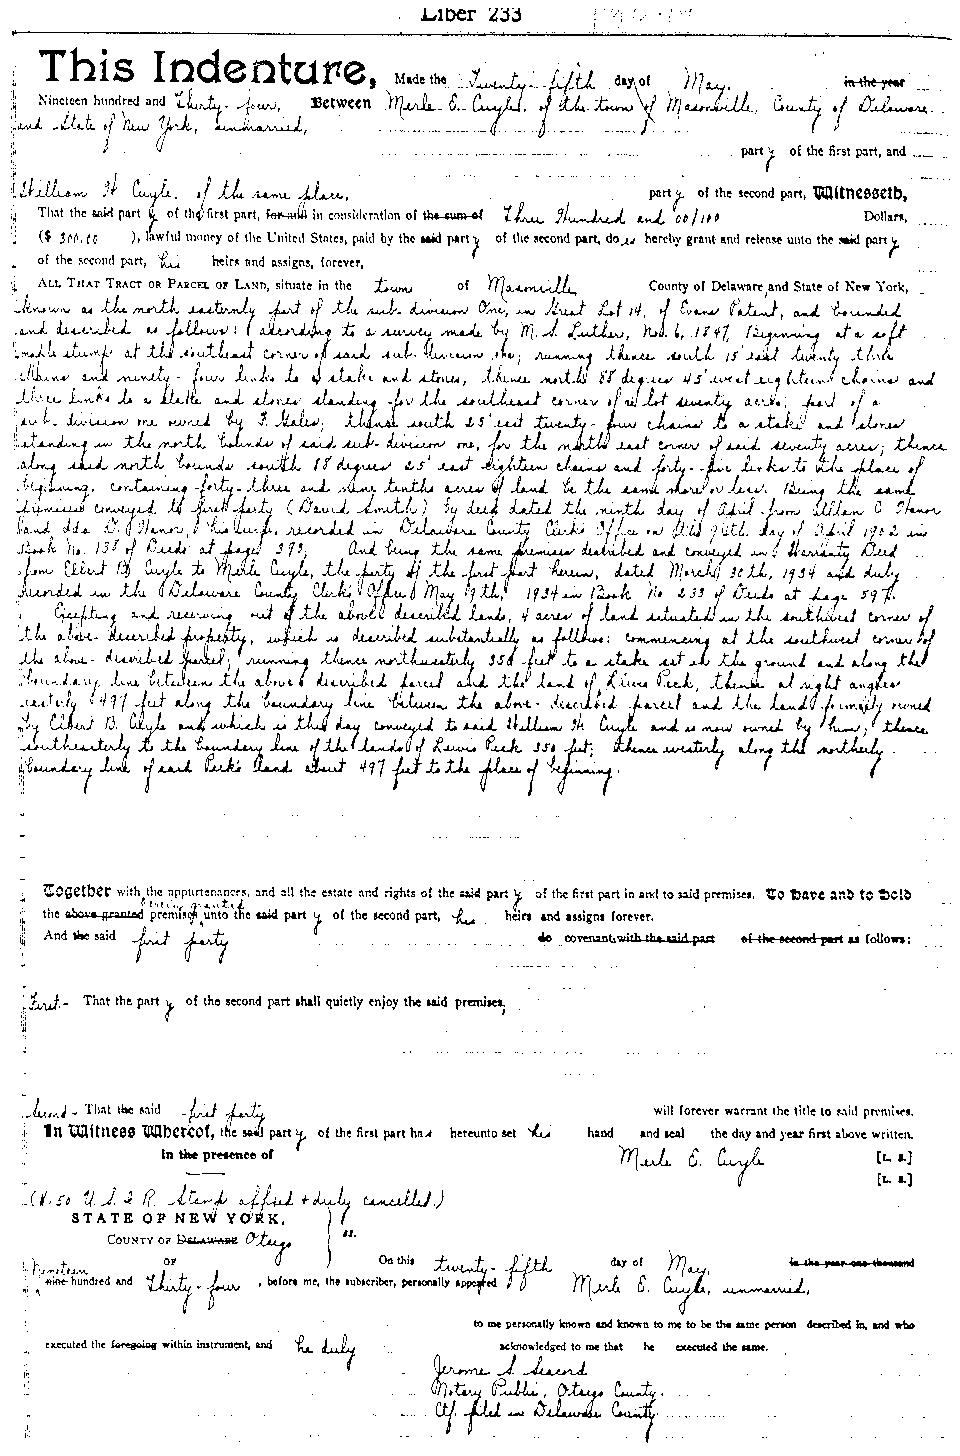 Liber 233
This Indenture, Made the Twenty-fifth day of May, in the year
Nineteen hundred and Thirty-four, Between Merle E. Cuyle, of the town of Masonville, County of Delaware
and State of New York, unmarried,
party of the first part, and
William H. Cuyle, of the same place, party of the second part, Witnesseth,
That the said party of the first part, for and in consideration of the sum of Three Hundred and 00/100 Dollars,
($ 300.00 ), lawful money of the United States, paid by the said party of the second part, does hereby grant and release unto the said party
of the second part, his heirs and assigns, forever,
ALL THAT TRACT OR PARCEL OF LAND, situate in the town of Masonville County of Delaware, and State of New York,
known as the north easternly part of the sub-division One, in Great Lot 14, of Evans Patent, and bounded
and described as follows: according to a survey made by M. S. Luther, Nov. 6, 1847, Beginning at a soft
maple stump at the southeast corner of said sub-division one; running thence south 15' east twenty three
chains and ninety-four links to a stake and stones, thence north 88 degrees 45' west eighteen chains and
three links to a stake and stones standing for the southeast corner of lot seventy acres; part of a
sub-division one owned by ; thence south 25' east twenty-four chains to a stake and stones
standing in the north bounds of said sub-division one, for the north east corner of said seventy acres; thence
along said north bounds south 88 degrees 25' east eighteen chains and forty-five links to the place of
beginning, containing forty-three and nine tenths acres of land be the same more or less. Being the same
premises conveyed to first party (David Smith) by deed dated the ninth day of April from C. Honor
and Ida D. Honor, his wife, recorded in Delaware County Clerk's Office on this day of April 1902 in
Book No. 138 of Deeds at page 393, And being the same premises described and conveyed in Warranty Deed
from Elbert B. Cuyle to Merle Cuyle, the party of the first part herein, dated March 30th, 1934 and duly
recorded in the Delaware County Clerk's Office May 9th, 1934 in Book No 233 of Deeds at page 597.
Excepting and reserving out of the above described lands, 4 acres of land situated in the southwest corner of
the above-described property, which is described substantially as follows: commencing at the southwest corner of
the above-described parcel; running thence northwesterly 350 feet to a stake set in the ground and along the
boundary line between the above described parcel and the land of Lewis Peck, thence at right angles
easterly 497 feet along the boundary line between the above-described parcel and the land formerly owned
by Elbert B. Cuyle and which is this day conveyed to said William H. Cuyle and is now owned by him; thence
southeasterly to the boundary line of the lands of Lewis Peck 350 feet; thence westerly along the northerly
boundary line of said Peck's land about 497 feet to the place of beginning.
Together with the appurtenances, and all the estate and rights of the said party of the first part in and to said premises. To Have and to Hold
hereby granted
the above granted premises unto the said party of the second part, his heirs and assigns forever.
And the said first party do covenant with the said part of the second part as follows:
First.- That the party of the second part shall quietly enjoy the said premises,
Second- That the said first party will forever warrant the title to said premises.
In Witness Whereof, the said party of the first part has hereunto set his hand and seal the day and year first above written.
In the presence of Merle E. Cuyle [L. S.]
[L. S.]
(.50 U. S. I. R. Stamp affixed & duly cancelled.)
STATE OF NEW YORK,
COUNTY OF DELAWARE Otsego ss.
OF On this twenty-fifth day of May, in the year one thousand
Nineteen
nine hundred and Thirty-four, before me, the subscriber, personally appeared Merle E. Cuyle, unmarried,
to me personally known and known to me to be the same person described in, and who
executed the foregoing within instrument, and he duly acknowledged to me that he executed the same.
Jerome S. Seacord
Notary Public, Otsego County.
Ctf. filed in Delaware County.